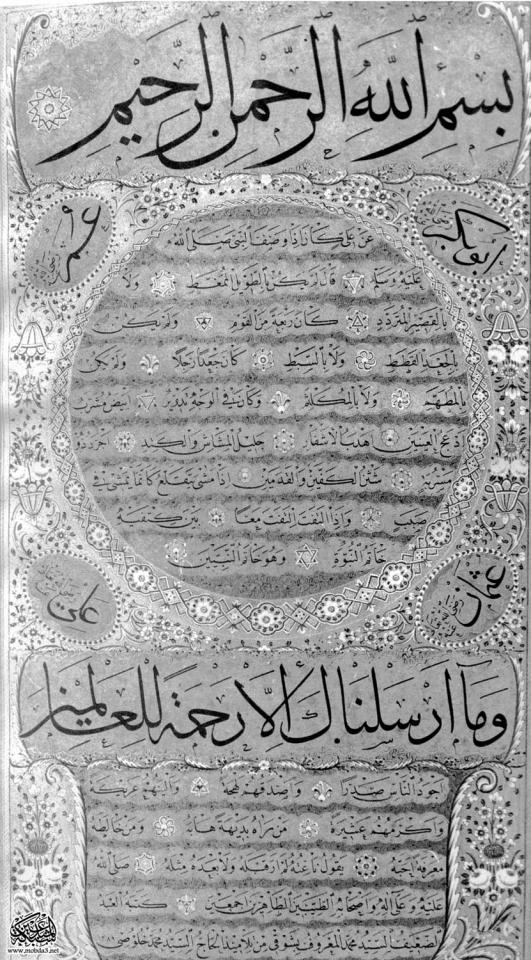 بسم الله الرحمن الرحيم
ابوبكر
عمر
عن علي كان اذا وصف النبي صلى الله
عليه وسلم قال لم يكن بالطويل الممغط ولا
بالقصير المتردد كان ربعة من القوم ولم يكن
بالجعد القطط ولا بالسبط كان جعدا رجلا ولم يكن
بالمطهم ولا بالمكلثم وكان في الوجه تدوير ابيض مشرب
ادعج العينين اهدب الاشفار جليل المشاش والكتد اجرد ذو
مسربة شثن الكفين والقدمين اذا مشى يتقلع كانما يمشي في
صبب واذا التفت التفت معا بين كتفيه
خاتم النبوة وهو خاتم النبيين
عثمان
علي
وما ارسلناك الا رحمة للعالمين
اجود الناس صدرا واصدقهم لهجة والينهم عريكة
واكرمهم عشيرة من رآه بديهة هابه ومن خالطه
معرفة احبه يقول ناعته لم ار قبله ولا بعده مثله صلى الله
عليه وعلى اله واصحابه الطيبين الطاهرين اجمعين كتبه العبد
الضعيف السيد محمد المعروف من تلاميذ الحاج السيد محمد خلوصي
www.mobda3.net